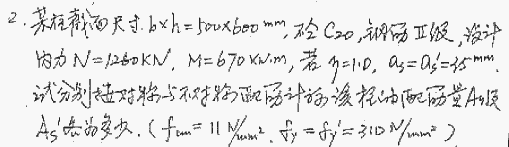 2. 某柱截面尺寸 b×h=500×600 mm, 砼 C20, 钢筋 II级, 设计
内力 N=1260KN, M=670 KN.m, 若 η=1.0, as=as'=35 mm.
试分别按对称与不对称配筋计算该柱的配筋量As及
As'各为多少. (fcm=11 N/mm². fy=fy'=310 N/mm²)